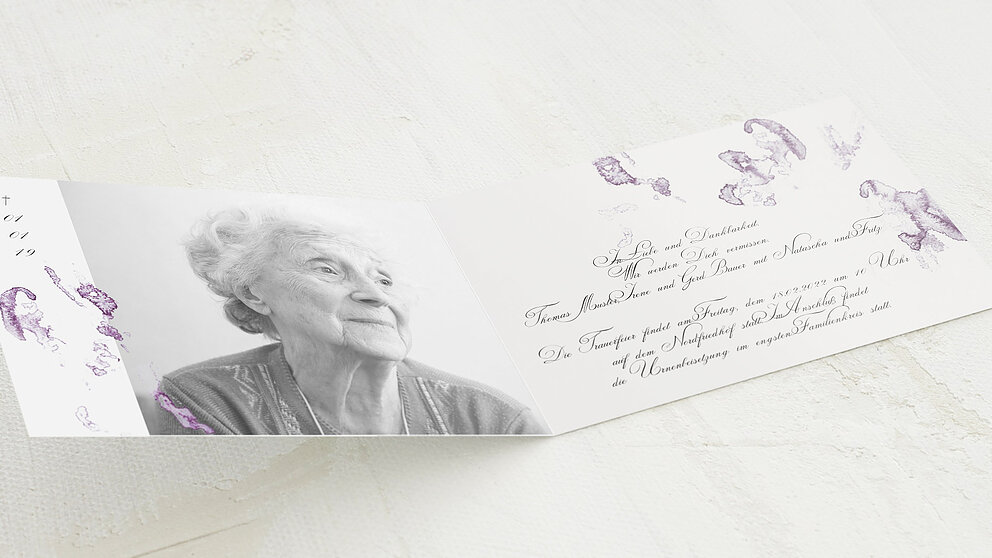 †
01
01
19
In Liebe und Dankbarkeit.
Wir werden Dich vermissen.
Thomas Muster, Irene und Gerd Bauer mit Natascha und Fritz
Die Trauerfeier findet am Freitag, dem 18.02.2022 um 10 Uhr
auf dem Nordfriedhof statt. Im Anschluß findet
die Urnenbeisetzung im engsten Familienkreis statt.